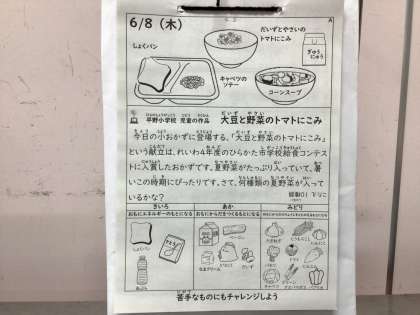 6/8 (木)
A
しょくパン
だいずとやさいの
トマトにこみ
ぎゅう
にゅう
キャベツの
ソテー
コーンスープ
平野小学校 児童の作品 大豆と野菜のトマトにこみ
今日の小おかずに登場する、「大豆と野菜のトマトにこみ」
という献立は、れいわ4年度のひらかた市学校給食コンテス
トに入賞したおかずです。夏野菜がたっぷり入っていて、暑
いこの時期にぴったりです。さて、何種類の夏野菜が入って
いるかな？
きいろ あか みどり
おもにエネルギーのもとになる おもにからだをつくるもとになる
しょくパン
あぶら
なまクリーム
だいず
とうもろこし
にんじん
たまねぎ
トマト
キャベツ
苦手なものにもチャレンジしよう